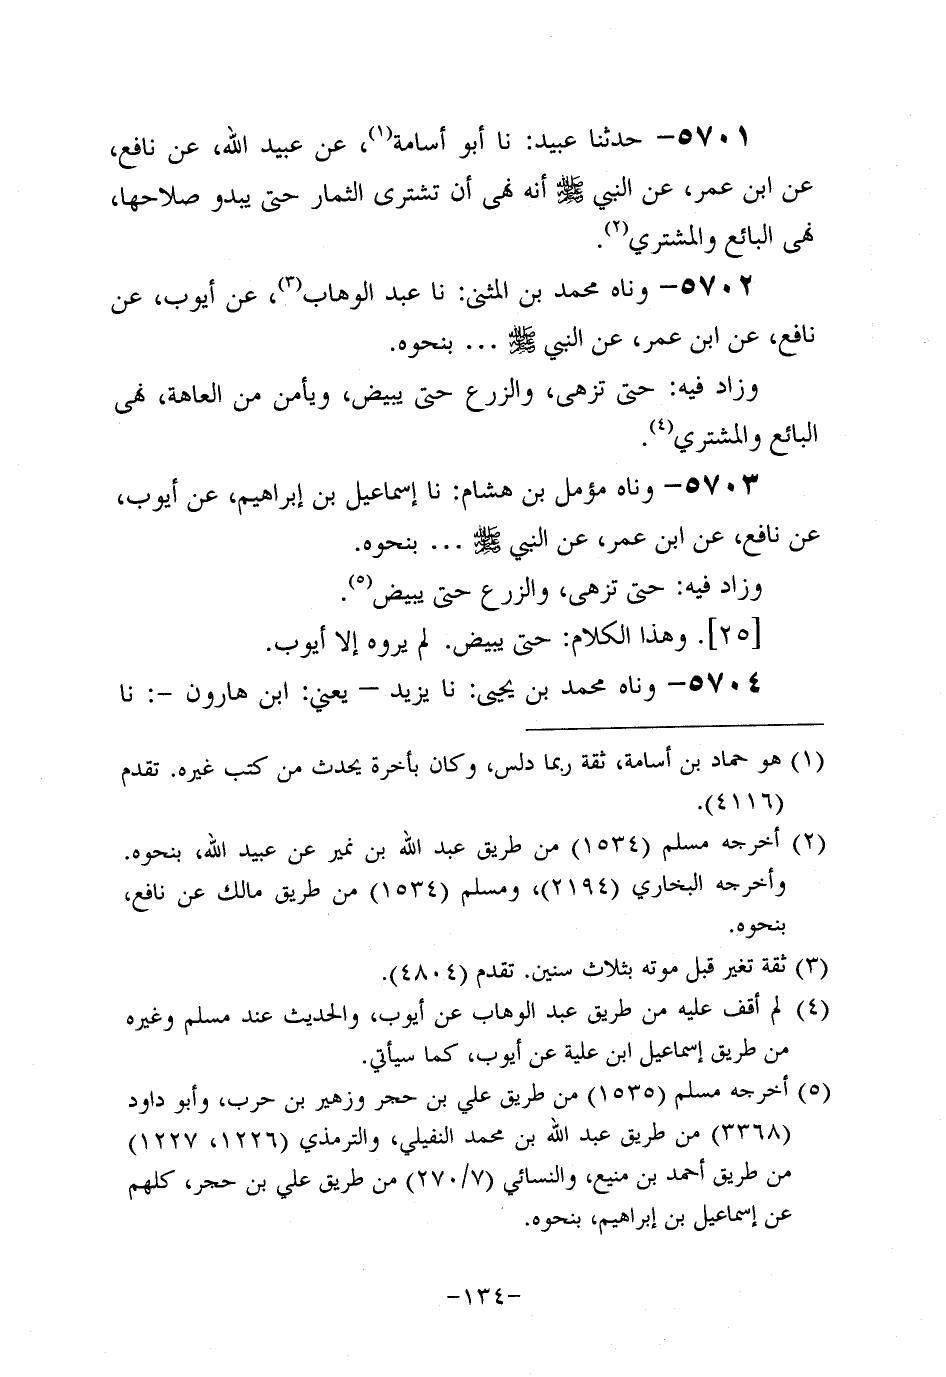 ٥٧٠١- حدثنا عبيد: نا أبو أسامة(١)، عن عبيد الله، عن نافع،
عن ابن عمر، عن النبي ﷺ أنه نهى أن تشترى الثمار حتى يبدو صلاحها،
نهى البائع والمشتري(٢).
٥٧٠٢- وناه محمد بن المثنى: نا عبد الوهاب(٣)، عن أيوب، عن
نافع، عن ابن عمر، عن النبي ﷺ ... بنحوه.
وزاد فيه: حتى تزهى، والزرع حتى يبيض، ويأمن من العاهة، نهى
البائع والمشتري(٤).
٥٧٠٣- وناه مؤمل بن هشام: نا إسماعيل بن إبراهيم، عن أيوب،
عن نافع، عن ابن عمر، عن النبي ﷺ ... بنحوه.
وزاد فيه: حتى تزهى، والزرع حتى يبيض(٥).
[٢٥]. وهذا الكلام: حتى يبيض. لم يروه إلا أيوب.
٥٧٠٤- وناه محمد بن يحيى: نا يزيد – يعني: ابن هارون –: نا
(١) هو حماد بن أسامة، ثقة ربما دلس، وكان بأخرة يحدث من كتب غيره. تقدم
(٤١١٦).
(٢) أخرجه مسلم (١٥٣٤) من طريق عبد الله بن نمير عن عبيد الله، بنحوه.
وأخرجه البخاري (٢١٩٤)، ومسلم (١٥٣٤) من طريق مالك عن نافع،
بنحوه.
(٣) ثقة تغير قبل موته بثلاث سنين. تقدم (٤٨٠٤).
(٤) لم أقف عليه من طريق عبد الوهاب عن أيوب، والحديث عند مسلم وغيره
من طريق إسماعيل ابن علية عن أيوب، كما سيأتي.
(٥) أخرجه مسلم (١٥٣٥) من طريق علي بن حجر وزهير بن حرب، وأبو داود
(٣٣٦٨) من طريق عبد الله بن محمد النفيلي، والترمذي (١٢٢٦، ١٢٢٧)
من طريق أحمد بن منيع، والنسائي (٢٧٠/٧) من طريق علي بن حجر، كلهم
عن إسماعيل بن إبراهيم، بنحوه.
-١٣٤-